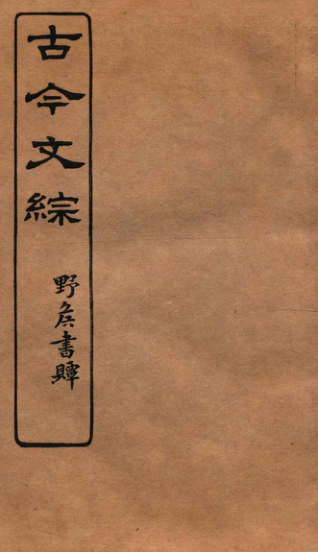 古今文綜
野矦書𧸘